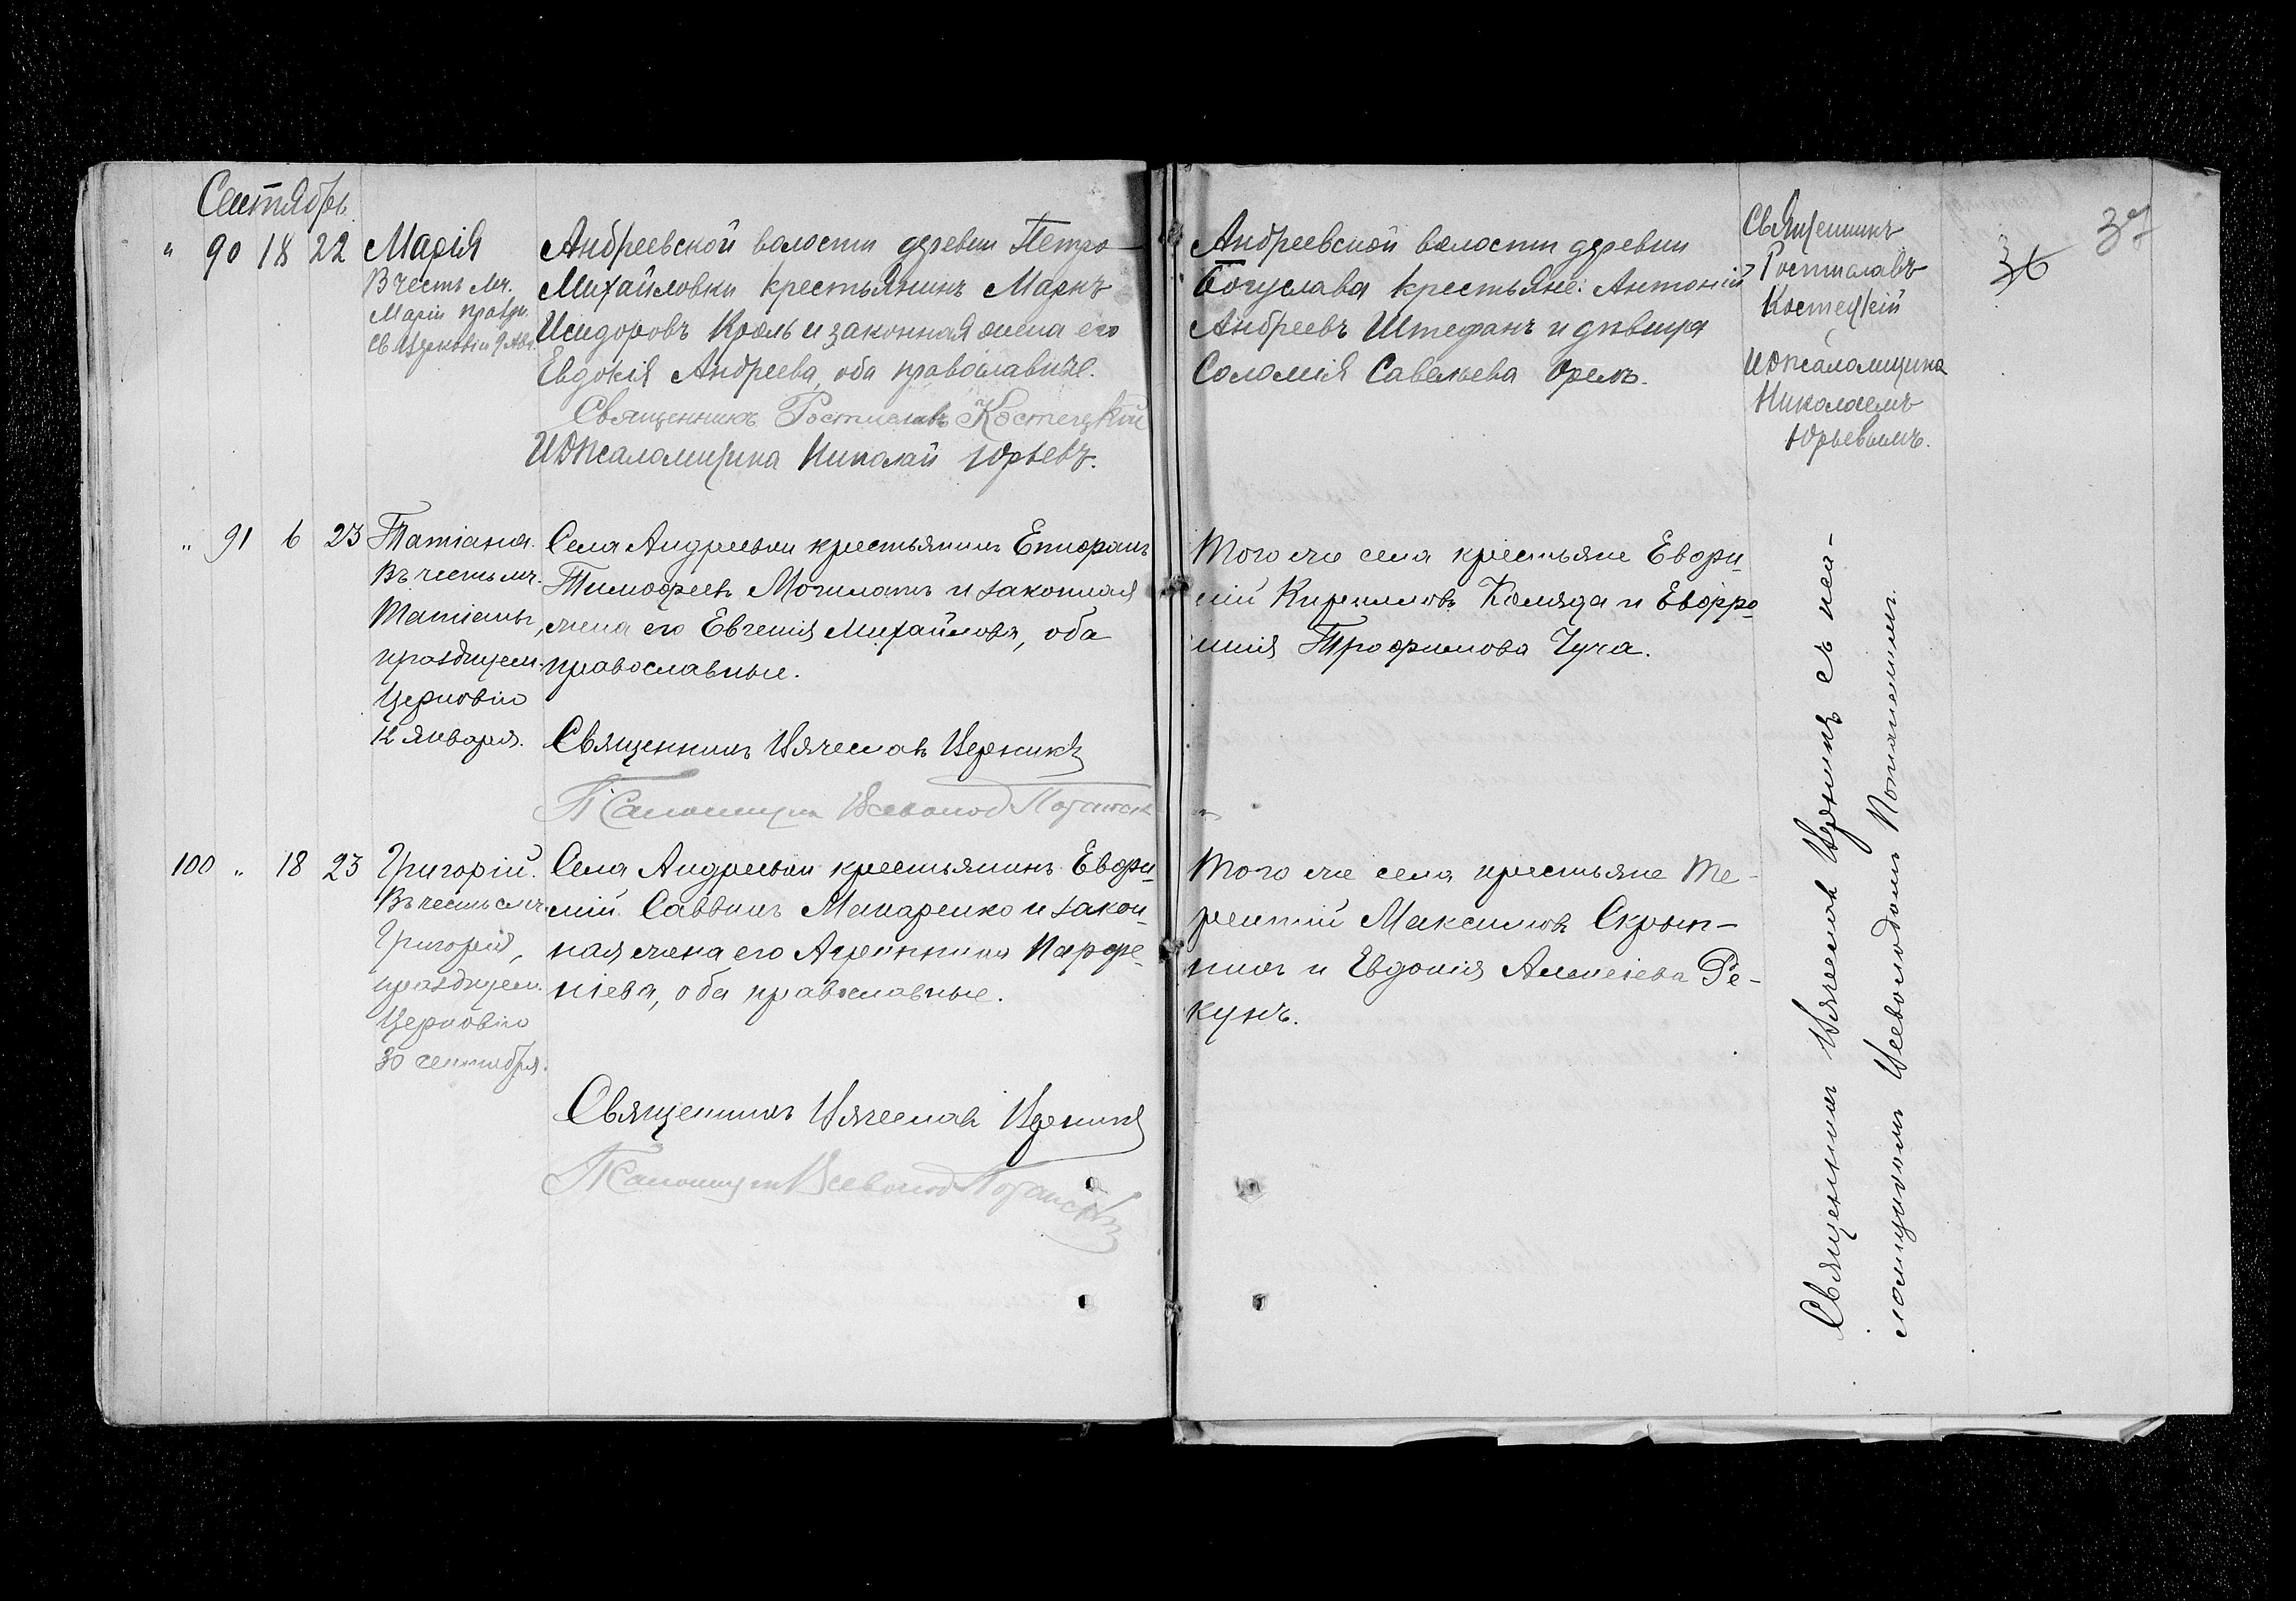 Сентябрь
" 90 18 22 Марія
В честь мч.
Маріи праздн.
Св. Церковію 9 Авг.
Андреевской волости деревни Петро-
Михайловки крестьянинъ Маркъ
Исидоровъ Кроль и законная жена его
Евдокія Андреева, оба православные.
Священникъ Ростиславъ Костецкій
И. д. Псаломщика Николай Юрьевъ.
Андреевской волости деревни
Богуслава крестьяне: Антоній
Андреевъ Штефанъ и дѣвица
Соломія Савельева Орелъ.
Священникъ
Ростиславъ
Костецкій
И. д. Псаломщика
Николаемъ
Юрьевымъ.
36
37
" 91 6 23 Татіана.
Въ честь мч.
Татіаны,
празднуем.
Церковію
12 января.
Села Андреевки крестьянинъ
Тимофеевъ и законная
жена его Евгенія Михайлова, оба
православные.
Священникъ Вячеславъ
Псаломщикъ Всеволодъ
Того же села крестьяне Евфи-
мій Кирилловъ Коляда и Евфро-
синія Трофимова Чуча.
100 " 18 23 Григорій.
Въ честь смч.
Григорія,
празднуем.
Церковію
30 сентября.
Села Андреевки крестьянинъ Евфи-
мій Саввинъ Макаренко и закон-
ная жена его Агриппина Парфе-
ніева, оба православные.
Священникъ Вячеславъ
Псаломщикъ Всеволодъ
Того же села крестьяне Те-
рентій Максимовъ Скрып-
никъ и Евдокія Алексіева Ре-
кунъ.
Священникъ Вячеславъ съ пса-
ломщикомъ Всеволодомъ